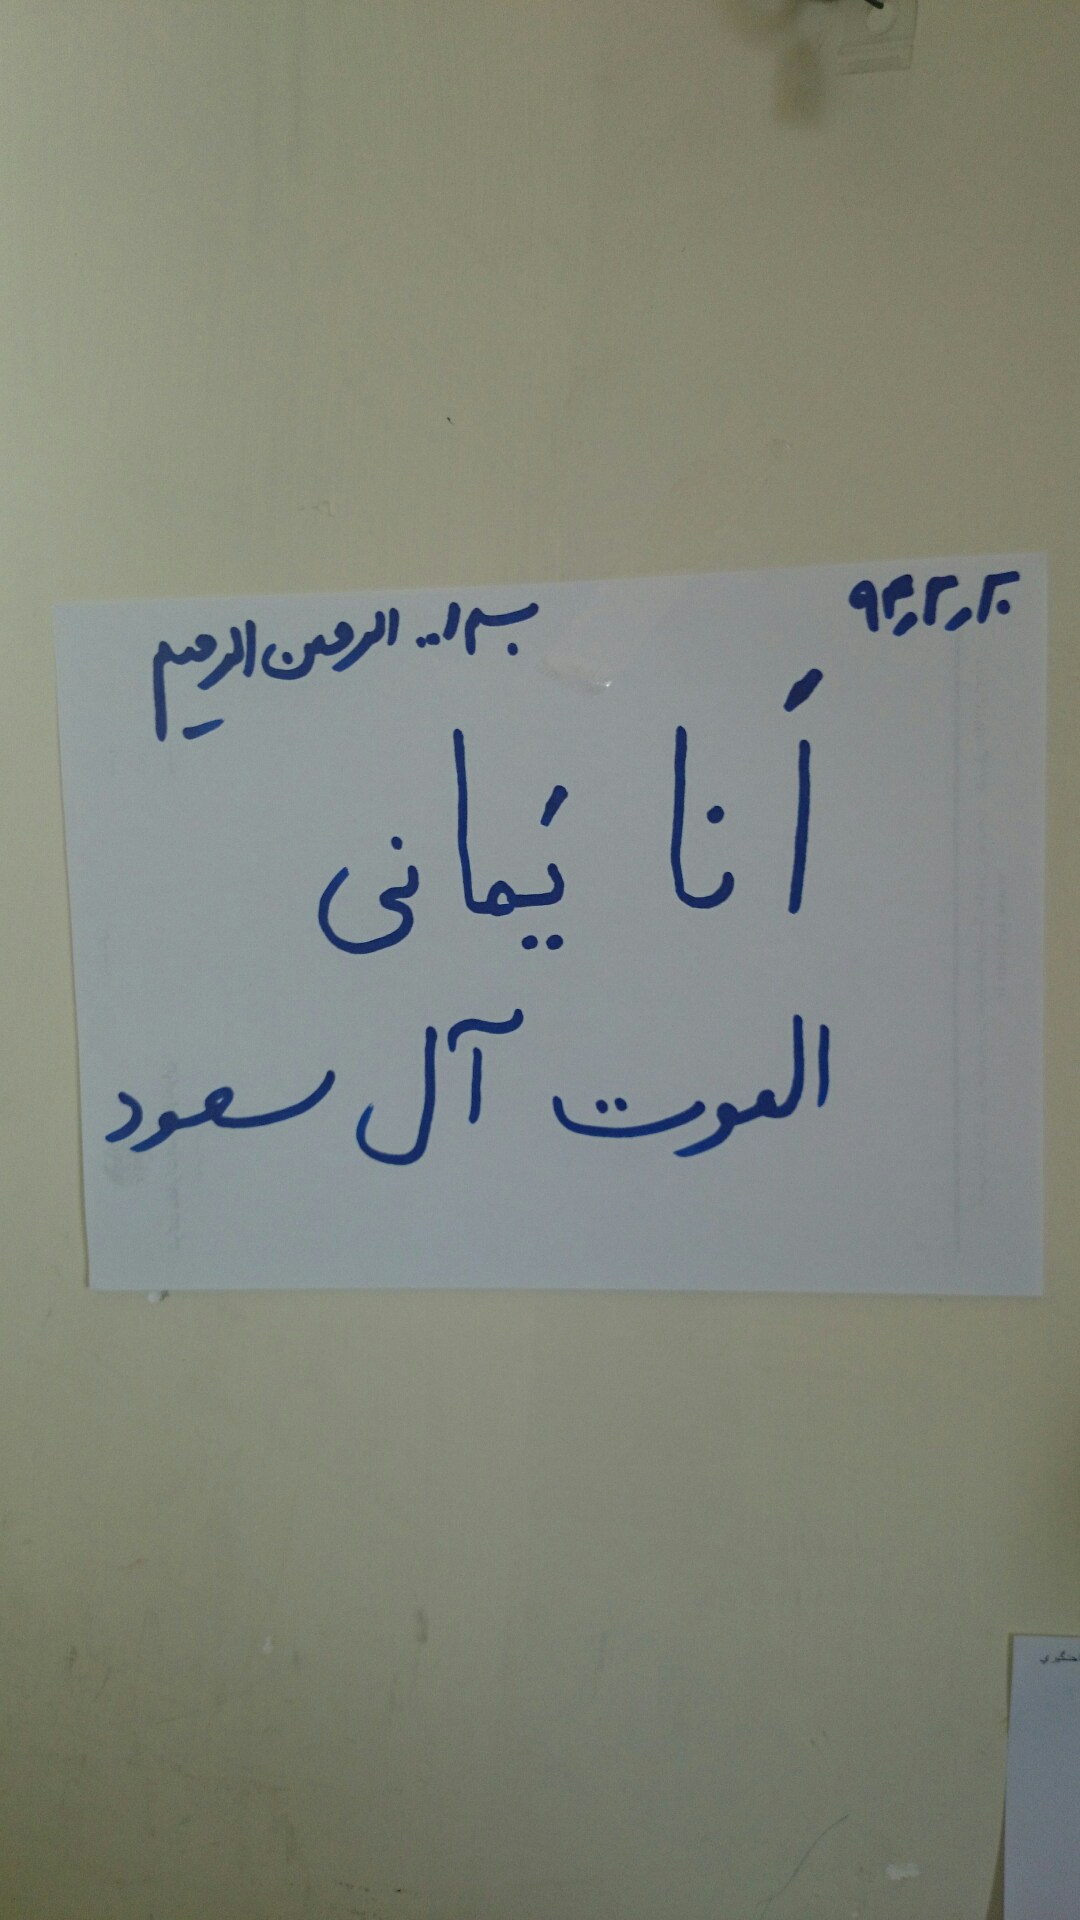 ۹۴٫۲٫۲۰
بسم ا.. الرحمن الرحیم
أنا یَمانی
الموت آل سعود